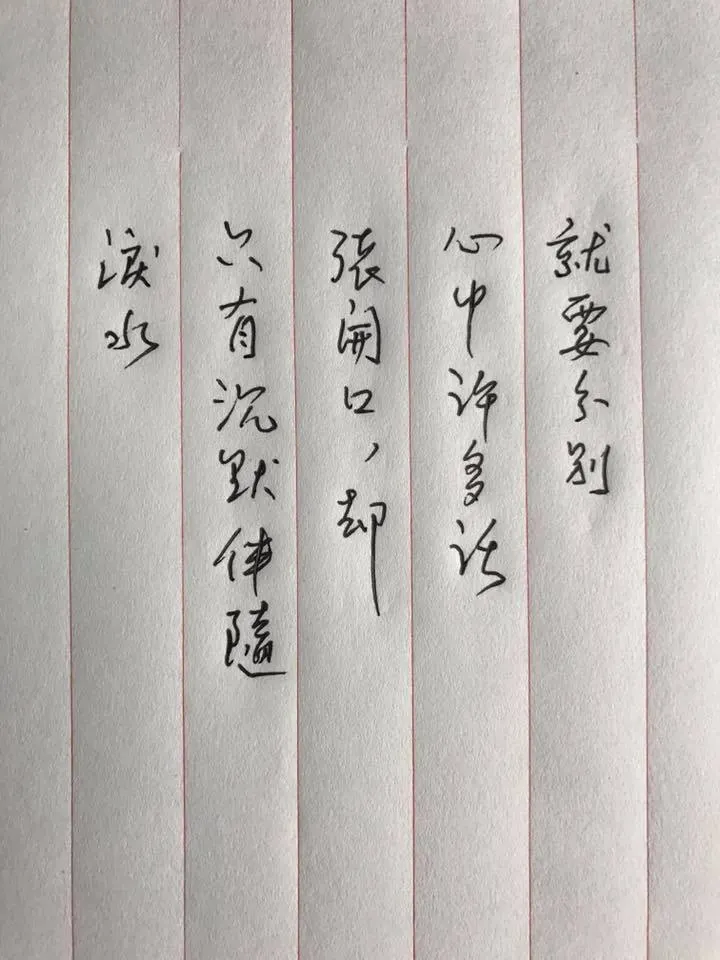 就要分别
心中许多话
張開口，却
只有沉默伴隨
淚水